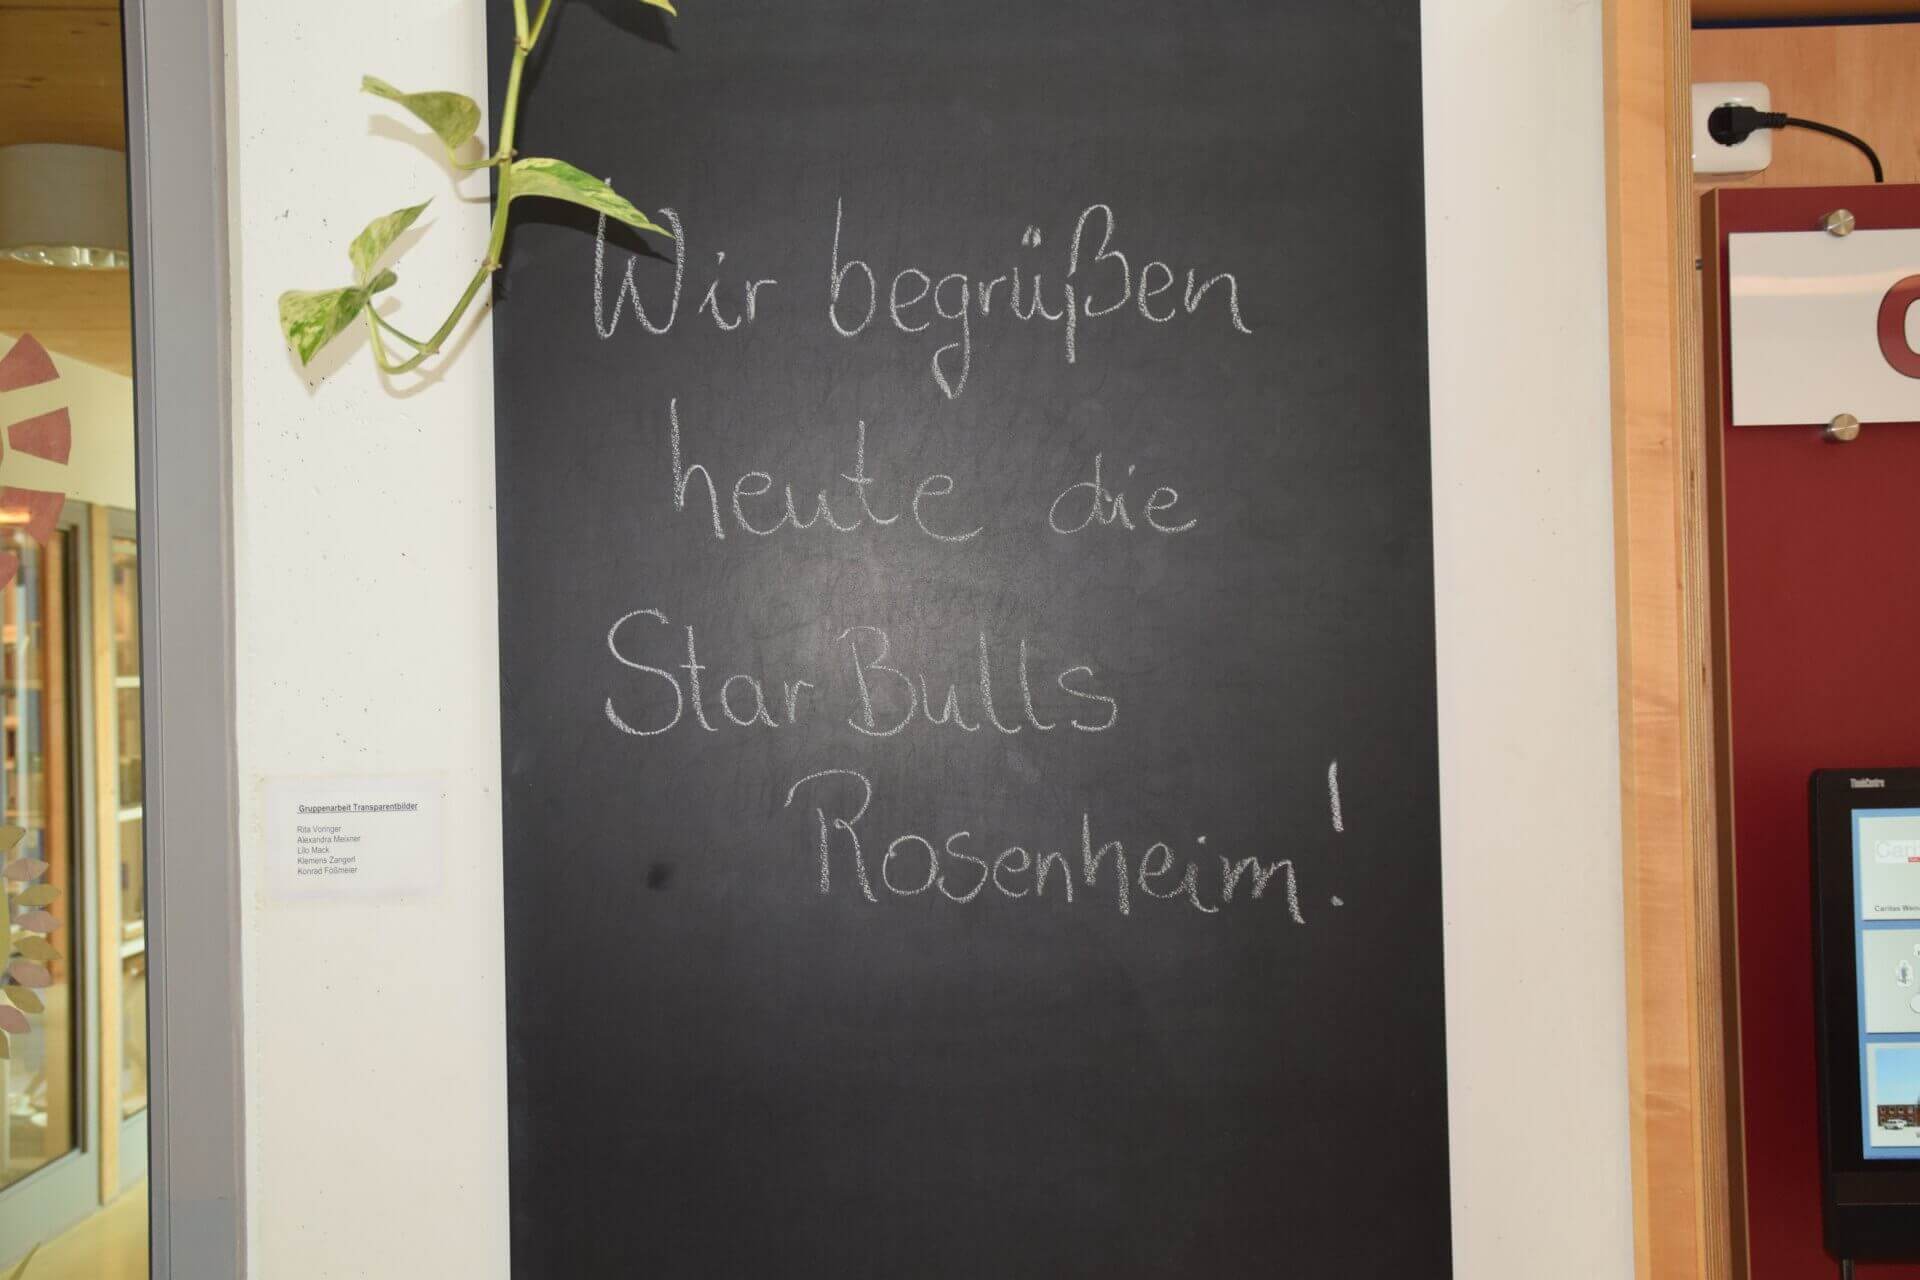 Wir begrüßen
heute die
Star Bulls
Rosenheim!
Gruppenarbeit Transparentbilder
Rita Voringer
Alexandra Meixner
Lilo Mack
Klemens Zangerl
Konrad Foßmeier
ThinkCentre
Caritas